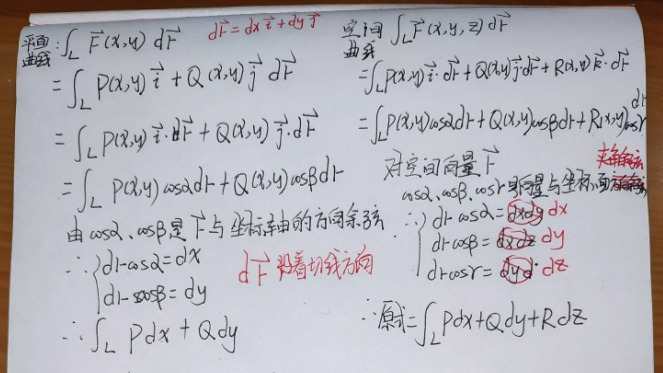 平面曲线: ∫_L F⃗(x,y) dr⃗
dr⃗ = dx i⃗ + dy j⃗
= ∫_L P(x,y) i⃗ + Q(x,y) j⃗ dr⃗
= ∫_L P(x,y) i⃗·dr⃗ + Q(x,y) j⃗·dr⃗
= ∫_L P(x,y) cosα dr + Q(x,y) cosβ dr
由 cosα、cosβ 是 r⃗ 与坐标轴的方向余弦
∴ { dr cosα = dx
dr cosβ = dy
dr⃗ 沿着切线方向
∴ ∫_L Pdx + Qdy
空间曲线 ∫_L F⃗(x,y,z) dr⃗
= ∫_L P(x,y) i⃗·dr⃗ + Q(x,y) j⃗ dr⃗ + R(x,y) k⃗·dr⃗
= ∫_L P(x,y) cosα dr + Q(x,y) cosβ dr + R(x,y) cosr dr
对空间向量 r⃗
cosα、cosβ、cosr 与坐标
夹角余弦
∴ { dr cosα = dxdy dx
dr cosβ = dxdz dy
dr cosr = dz
∴ 原式 = ∫_L Pdx + Qdy + Rdz